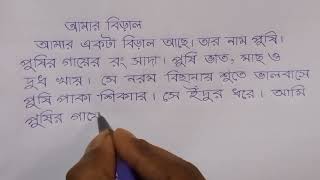 আমার বিড়াল
আমার একটা বিড়াল আছে। তার নাম পুষি।
পুষির গায়ের রং সাদা। পুষি ভাত, মাছ ও
দুধ খায়। সে নরম বিছানায় শুতে ভালবাসে
পুষি পাকা শিকার। সে ইঁদুর ধরে। আমি
পুষির গায়ে